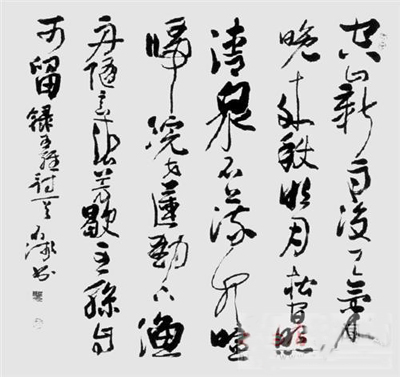 空山新雨後天氣
晚來秋明月松間照
清泉石上流竹喧
歸浣女蓮動下漁
舟隨意春芳歇王孫自
可留 錄王維詩一首 書